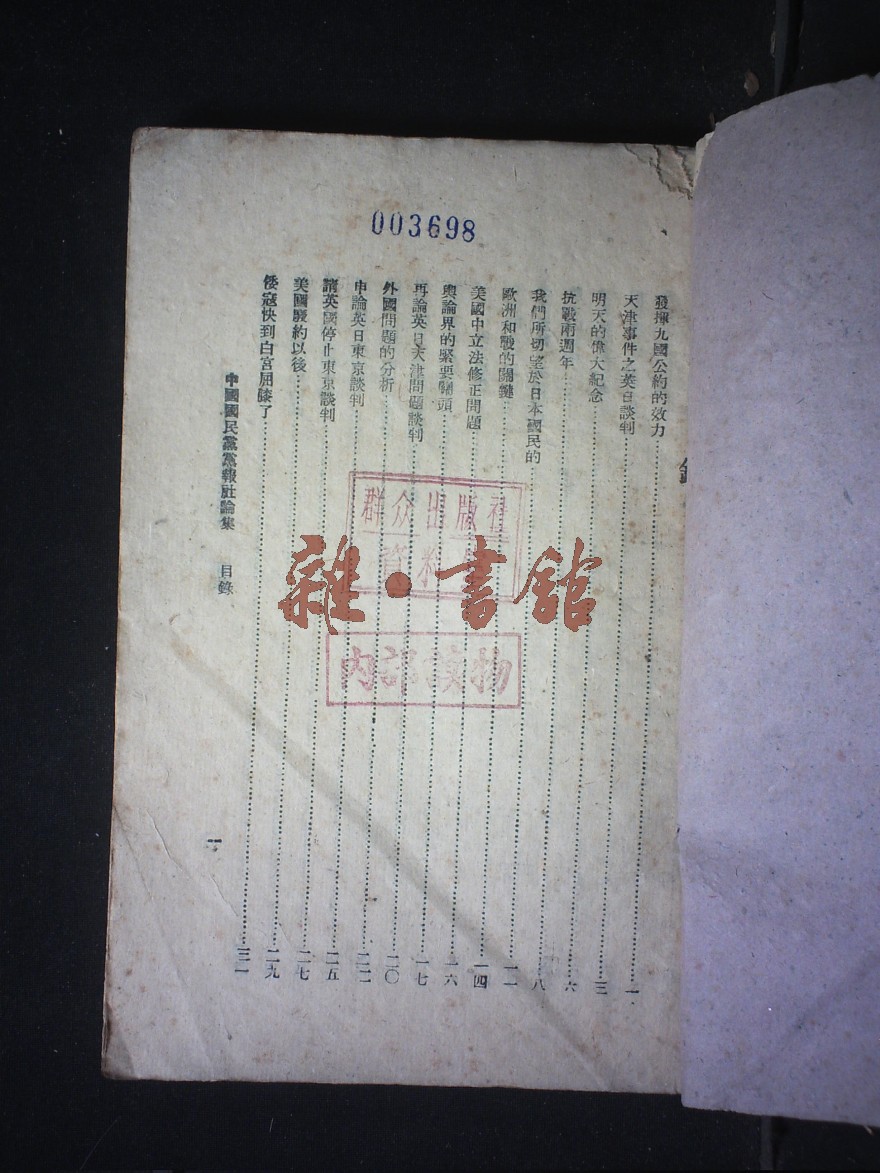 003698
錄
發揮九國公約的效力……一
天津事件之英日談判……三
明天的偉大紀念……六
抗戰兩週年……八
我們所切望於日本國民的……一一
歐洲和戰的關鍵……一四
美國中立法修正問題……一六
輿論界的緊要關頭……一七
再論英日天津問題談判……二〇
外國問題的分析……二二
申論英日東京談判……二五
請英國停止東京談判……二七
美國廢約以後……二九
倭寇快到白宮屈膝了……三一
中國國民黨黨報社論集 目錄
一
群众出版社
資料
内部讀物
雜·書館